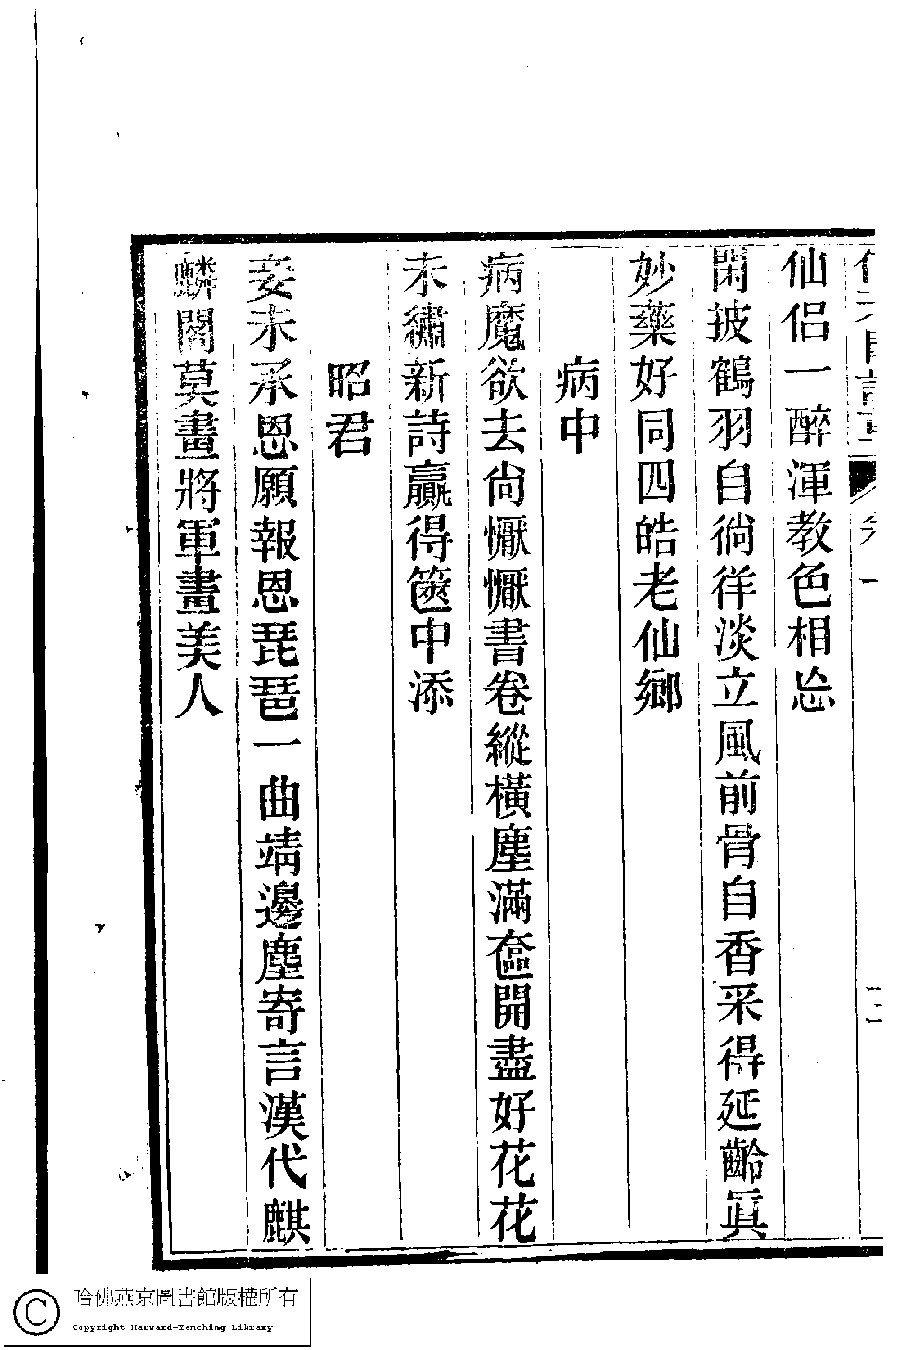 仙侶一醉渾教色相忘
閑披鶴羽自徜徉淡立風前骨自香采得延齡眞
妙藥好同四皓老仙鄉
病中
病魔欲去尙懨懨書卷縱橫塵滿奩開盡好花花
未繡新詩贏得篋中添
昭君
妾未承恩願報恩琵琶一曲靖邊塵寄言漢代麒
麟閣莫畫將軍畫美人
哈佛燕京圖書館版權所有
Copyright Harvard-Yenching Library